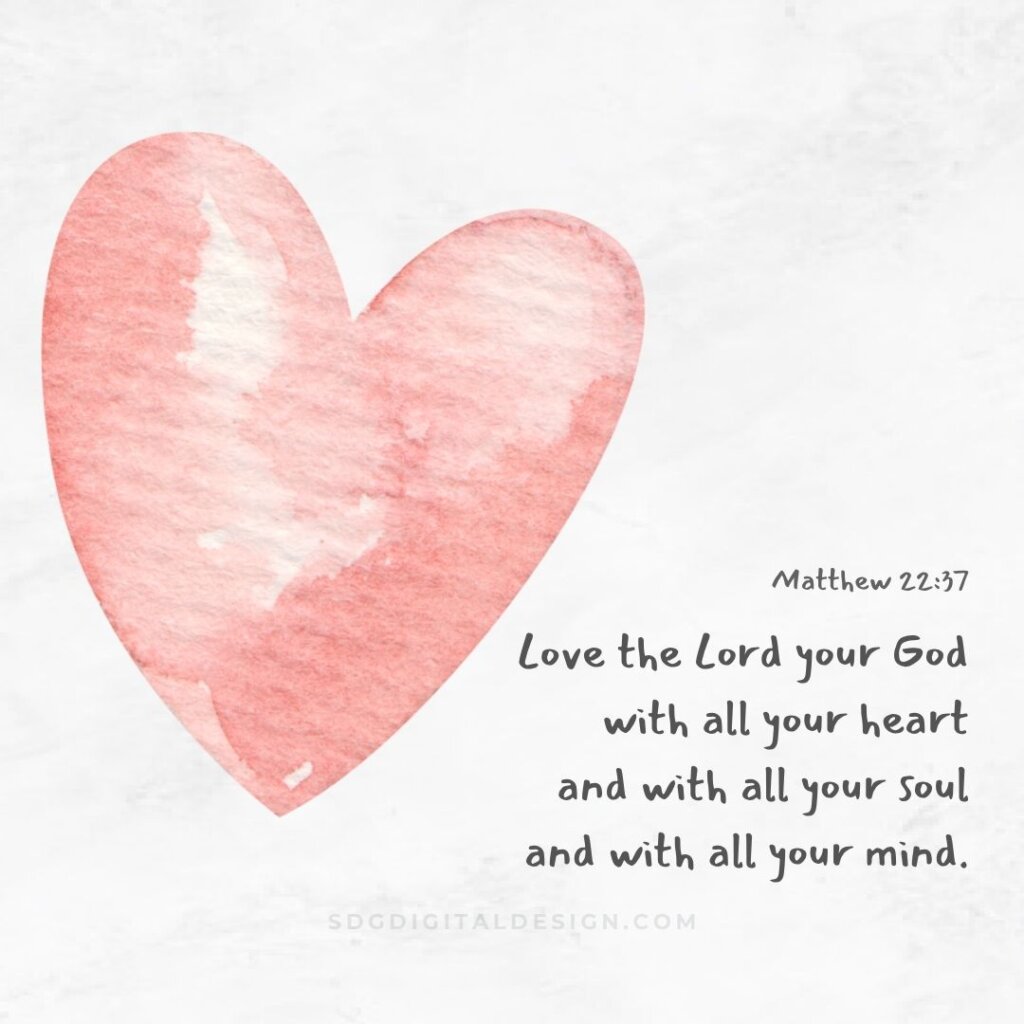 Matthew 22:37
Love the Lord your God
with all your heart
and with all your soul
and with all your mind.
SDGDIGITALDESIGN.COM